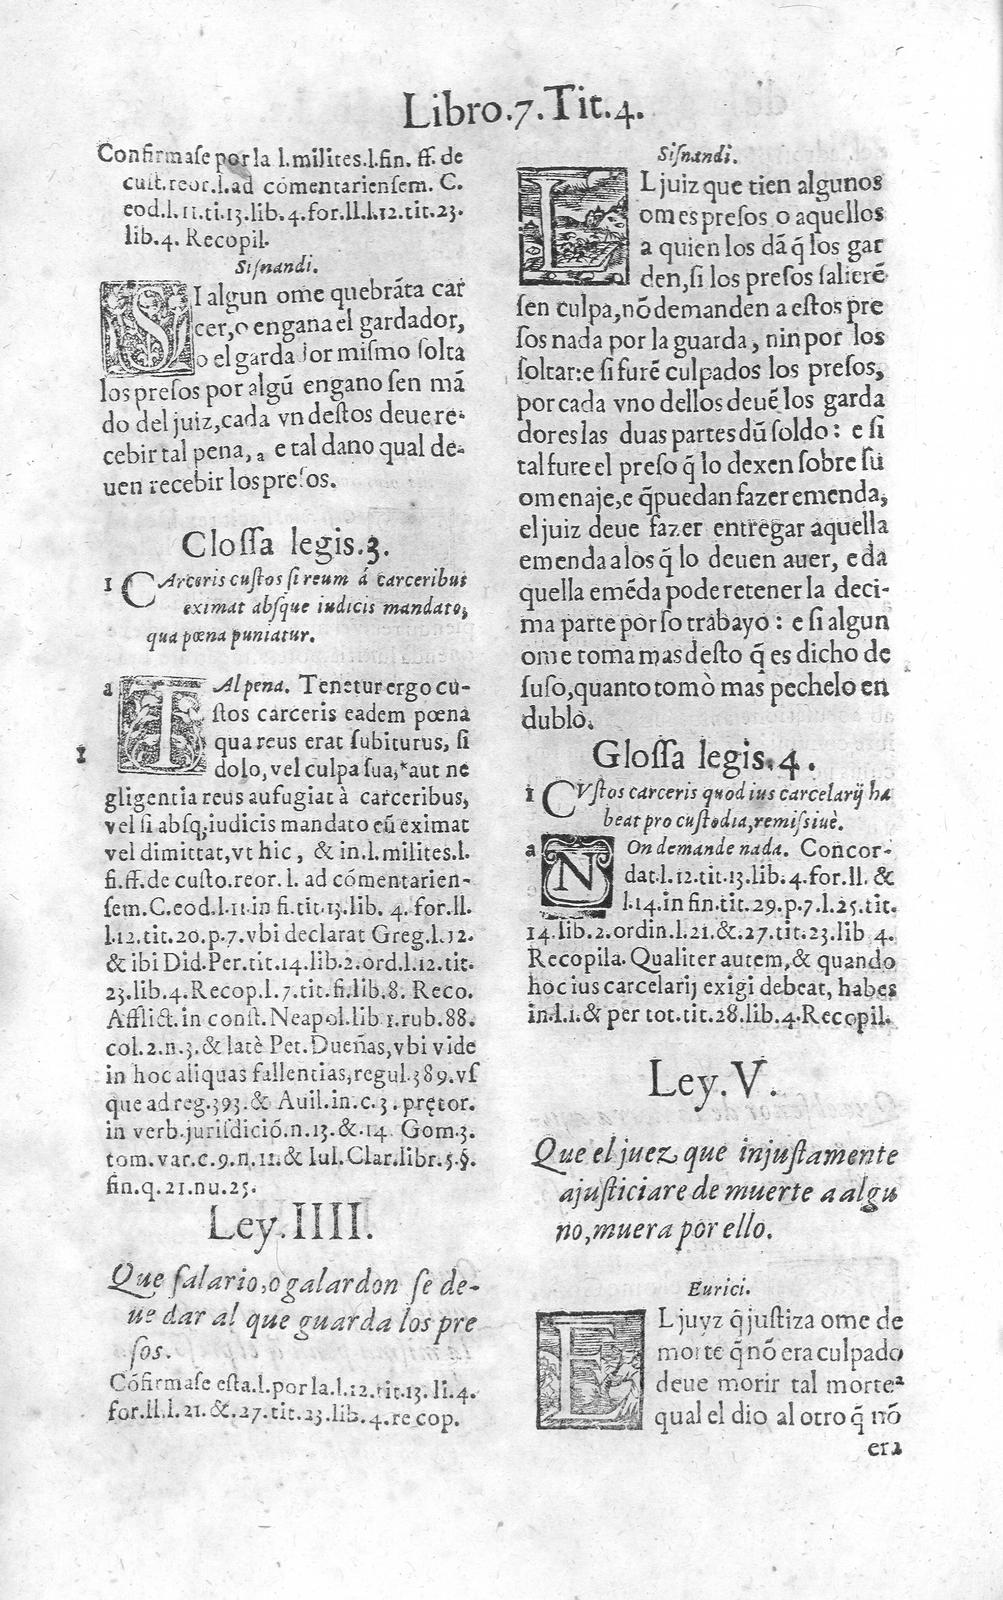 Libro.7.Tit.4.
Confirmase por la l.milites.l.fin. ff. de
cust.reor.l.ad comentariensem. C.
eod.l.11.ti.13.lib.4.for.ll.l.12.tit.23.
lib.4. Recopil.
Siſnandi.
SI algun ome quebrãta car
cer,o engana el gardador,
o el garda por miſmo ſolta
los preſos por algũ engano ſen mã
do del juiz,cada vn deſtos deue re-
cebir tal pena, a e tal dano qual de-
uen recebir los preſos.
Gloſſa legis.3.
1 CArceris cuſtos ſi reum á carceribus
eximat abſque iudicis mandato,
qua pœna puniatur.
a TAl pena. Tenetur ergo cu-
ſtos carceris eadem pœna
qua reus erat ſubiturus, ſi
1 dolo, vel culpa ſua,*aut ne
gligentia reus aufugiat à carceribus,
vel ſi abſq;iudicis mandato eũ eximat
vel dimittat,vt hic, & in.l.milites.l.
fi.ff.de cuſto.reor.l. ad cómentarien-
ſem.C.eod.l.11.in fi.tit.13.lib. 4. for.ll.
l.12.tit.20.p.7.vbi declarat Greg.l.12.
& ibi Did.Per.tit.14.lib.2.ord.l.12.tit.
23.lib.4.Recop.l.7.tit.fi.lib.8. Reco.
Afflict.in conſt.Neapol.lib 1.rub.88.
col.2.n.3.& latè Pet.Dueñas,vbi vide
in hoc aliquas fallentias,regul.389.vſ
que ad reg.393.& Auil.in.c.3.prętor.
in verb.juriſdició.n.13.&.14. Gom.3.
tom.var.c.9.n.11.& Iul.Clar.libr.5.§.
fin.q.21.nu.25.
Ley.IIII.
Que ſalario,o galardon ſe de-
ue dar al que guarda los pre
ſos.
Cõfirmaſe eſta.l.por la.l.12.tit.13. li.4.
for.ll.l.21.&.27.tit.23.lib.4.recop.
Siſnandi.
EL juiz que tien algunos
omes preſos o aquellos
a quien los dã q̃ los gar
den,ſi los preſos ſalierẽ
ſen culpa,nõ demanden a eſtos pre
ſos nada por la guarda, nin por los
ſoltar:e ſi furẽ culpados los preſos,
por cada vno dellos deuẽ los garda
dores las duas partes dũ ſoldo: e ſi
tal fure el preſo q̃ lo dexen ſobre ſu
omenaje,e q̃puedan fazer emenda,
el juiz deue fazer entregar aquella
emenda a los q̃ lo deuen auer, e da
quella emẽda pode retener la deci-
ma parte por ſo trabayo: e ſi algun
ome toma mas deſto q̃ es dicho de
ſuſo,quanto tomò mas pechelo en
dublo.
Gloſſa legis.4.
1 CVſtos carceris quod ius carcelarij ha
beat pro cuſtodia,remiſsiuè.
a NOn demande nada. Concor-
dat.l.12.tit.13.lib.4.for.ll. &
l.14.in fin.tit.29.p.7.l.25.tit.
14.lib.2.ordin.l.21.&.27.tit.23.lib 4.
Recopila. Qualiter autem,& quando
hoc ius carcelarij exigi debeat, habes
in.l.1.& per tot.tit.28.lib.4.Recopil.
Ley.V.
Que el juez que injuſtamente
ajuſticiare de muerte a algu
no,muera por ello.
Eurici.
EL juyz q̃ juſtiza ome de
morte q̃ nõ era culpado
deue morir tal morte a
qual el dio al otro q̃ nõ
era